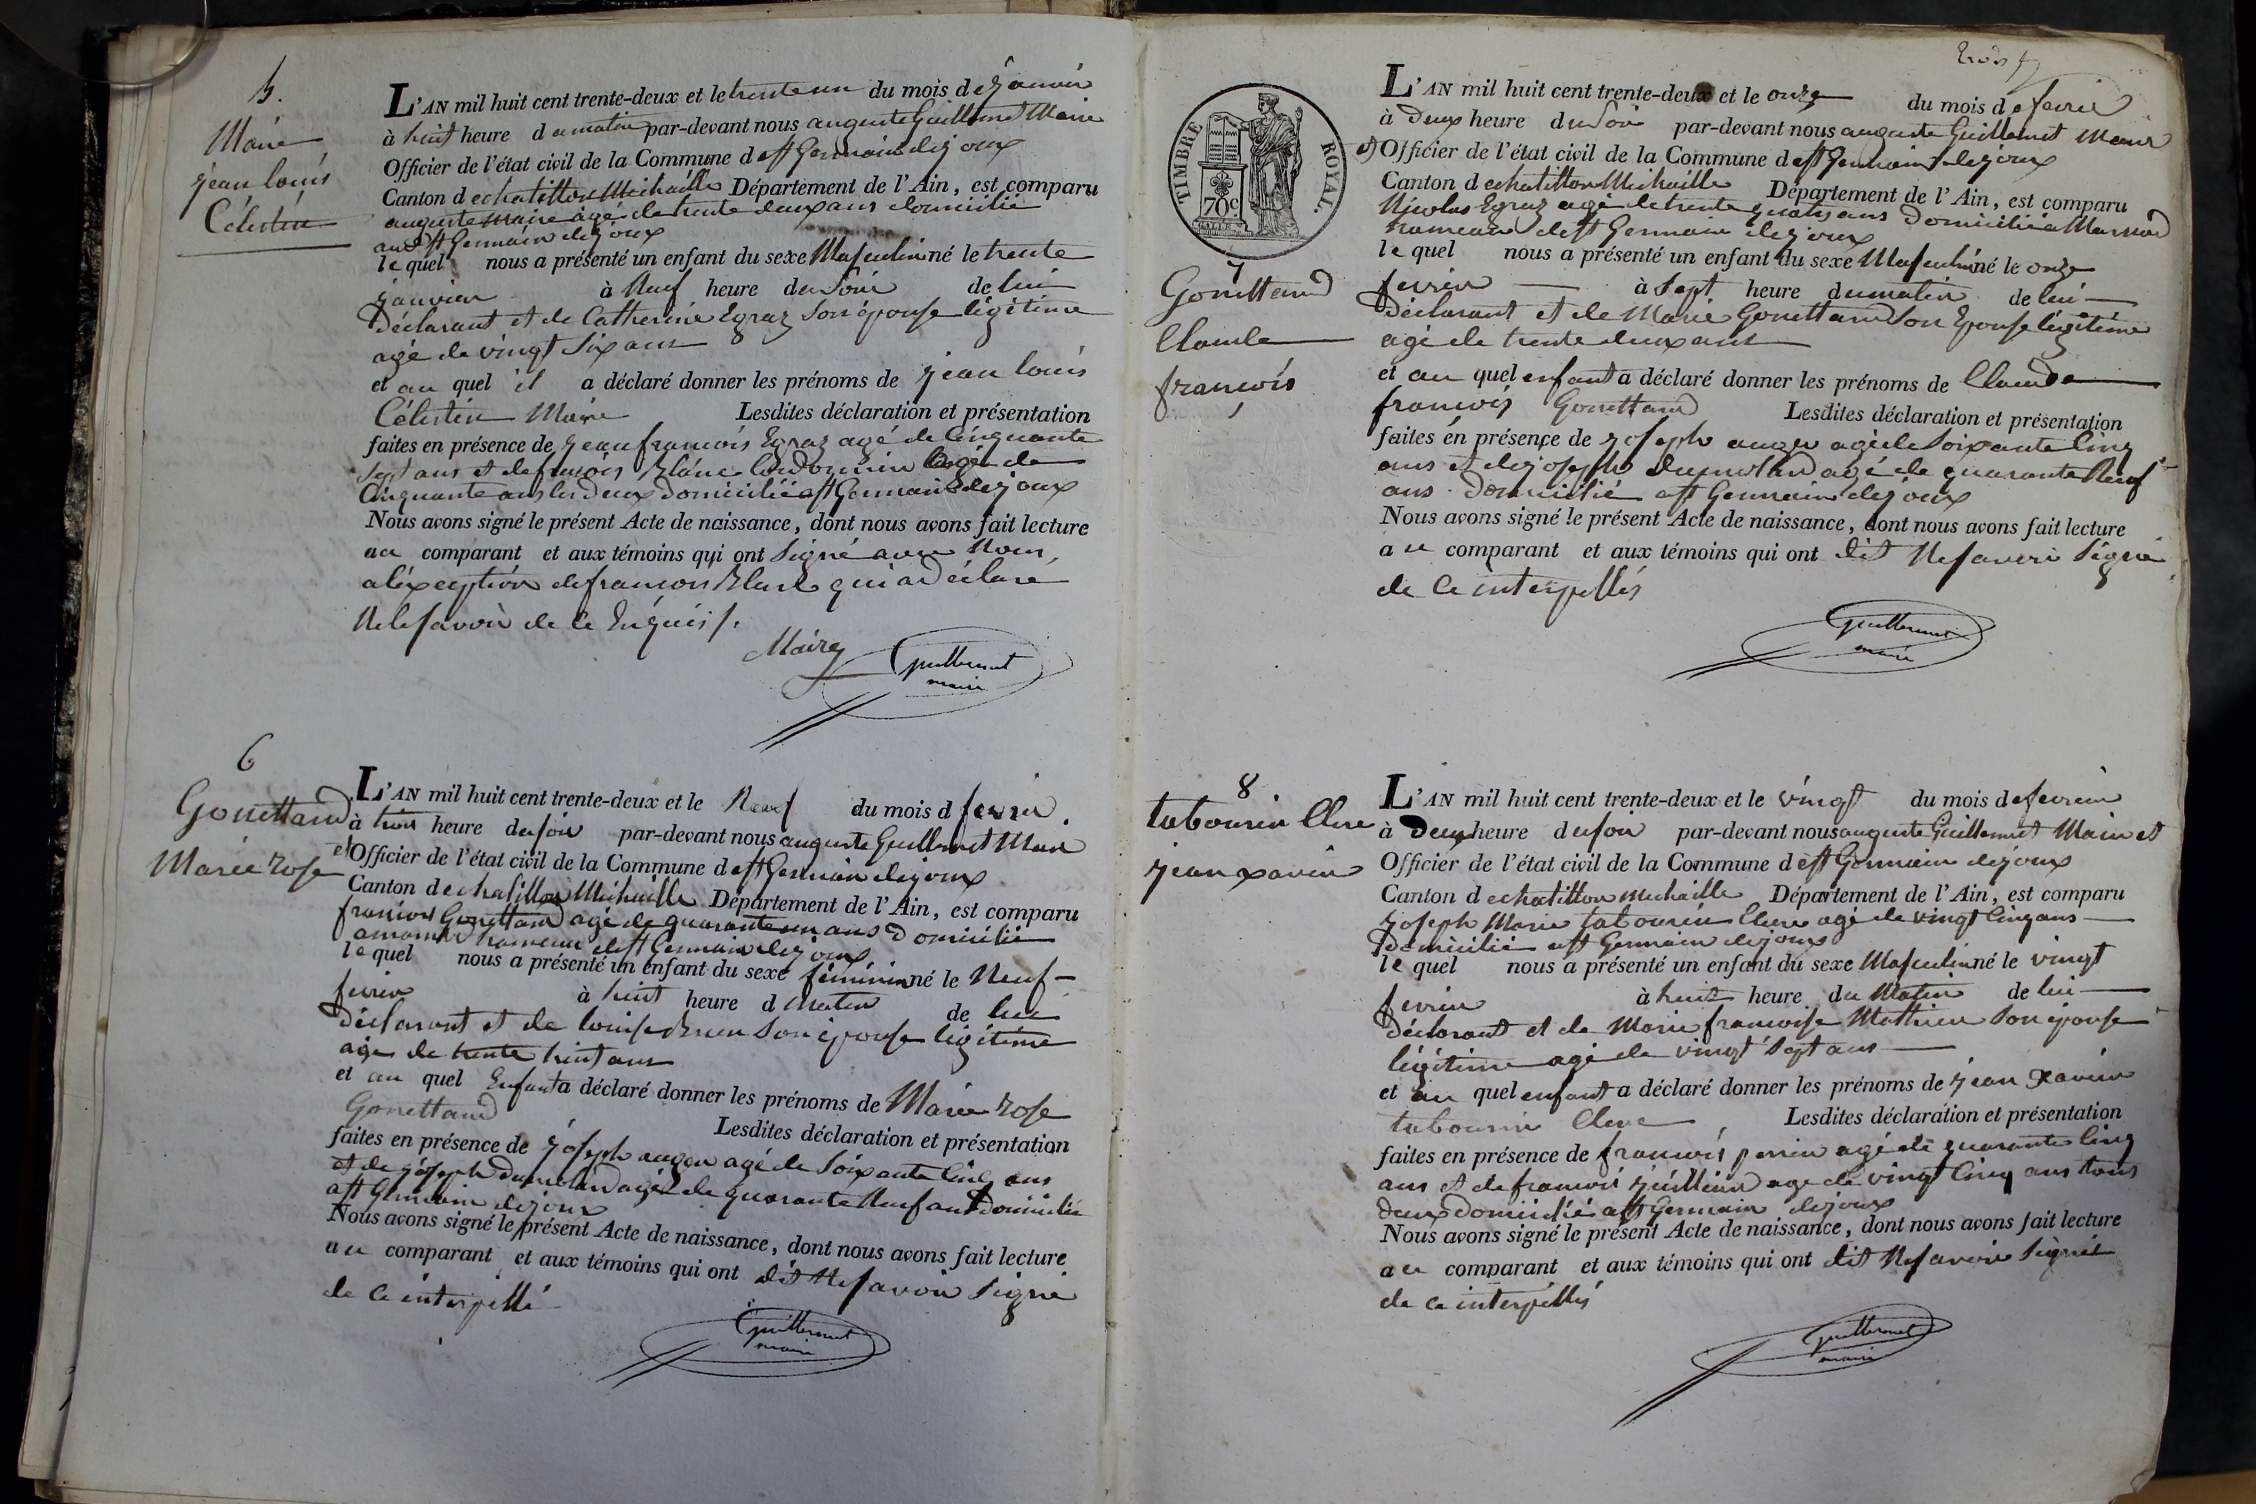 5.
Maire
jean louis
Célestin
L'AN mil huit cent trente-deux et le trente un du mois de janvier
à huit heure du matin par-devant nous auguste Guillermet Maire
Officier de l'état civil de la Commune de st Germain dejoux
Canton de chatillon Michaille Département de l'Ain, est comparu
auguste maire agé de trente deux ans domicilié
audt st Germain dejoux
le quel nous a présenté un enfant du sexe Masculin né le trente
janvier à Neuf heure du Soir de lui
Déclarant et de Catherine Egraz Son épouse légitime
agé de vingt Six ans
et au quel il a déclaré donner les prénoms de jean louis
Célestin Maire Lesdites déclaration et présentation
faites en présence de jean francois Egraz agé de Cinquante
Sept ans et de francois Blanc Cordonnier agé de
Cinquante ans les deux domicilié a st Germain dejoux
Nous avons signé le présent Acte de naissance, dont nous avons fait lecture
au comparant et aux témoins qui ont Signé avec Nous,
a l'éxception de francois Blanc qui a déclaré
Ne le savoir de ce Enquis /.
Maire
Guillermet
maire
6
Gonettand
Marie rose
L'AN mil huit cent trente-deux et le Neuf du mois d fevrier
à trois heure du soir par-devant nous auguste Guillermet Maire
et Officier de l'état civil de la Commune de st Germain dejoux
Canton de chatillon Michaille Département de l'Ain, est comparu
francois Gonettand agé de quarante un ans Domicilié
hameau de st Germain dejoux
le quel nous a présenté un enfant du sexe féminin né le Neuf
fevrier à huit heure d matin de lui
Déclarant et de louise Brun Son épouse légitime
agé de trente huit ans
et au quel Enfant a déclaré donner les prénoms de Marie rose
Gonettand Lesdites déclaration et présentation
faites en présence de joseph auger agé de Soixante Cinq ans
et de joseph Dumolard agé de quarante Neuf ans Domicilié
a st Germain dejoux
Nous avons signé le présent Acte de naissance, dont nous avons fait lecture
au comparant et aux témoins qui ont dit Ne savoir Signé
de ce interpellé
Guillermet
maire
trois
TIMBRE ROYAL.
70c
7
Gonettand
Claude
francois
L'AN mil huit cent trente-deux et le onze du mois de fevrier
à Deux heure du Soir par-devant nous auguste Guillermet Maire
et Officier de l'état civil de la Commune de st Germain dejoux
Canton de chatillon Michaille Département de l'Ain, est comparu
Nicolas Egraz agé de trente quatre ans Domicilié a
hameau de st Germain dejoux
le quel nous a présenté un enfant du sexe Masculin né le onze
fevrier à Sept heure du matin de lui
Déclarant et de Marie Gonettand Son Epouse légitime
agé de trente deux ans
et au quel enfant a déclaré donner les prénoms de Claude
francois Gonettand Lesdites déclaration et présentation
faites en présence de joseph auger agé de Soixante Cinq
ans et de joseph Dumolard agé de quarante Neuf
ans Domicilié a st Germain dejoux
Nous avons signé le présent Acte de naissance, dont nous avons fait lecture
au comparant et aux témoins qui ont dit Ne savoir Signé
de ce interpellés
Guillermet
maire
8
tabourin Clerc
jean xavier
L'AN mil huit cent trente-deux et le vingt du mois de fevrier
à Deux heure du soir par-devant nous auguste Guillermet Maire et
Officier de l'état civil de la Commune de st Germain dejoux
Canton de chatillon michaille Département de l'Ain, est comparu
joseph Marie tabourin Clerc agé de vingt Cinq ans
Domicilié a st Germain dejoux
le quel nous a présenté un enfant du sexe Masculin né le vingt
fevrier à huit heure du Matin de lui
Déclarant et de Marie francoise Mathieu Son épouse
légitime agé de vingt Sept ans
et au quel enfant a déclaré donner les prénoms de jean xavier
tabourin Clerc Lesdites déclaration et présentation
faites en présence de francois perrin agé de quarante Cinq
ans et de francois agé de vingt Cinq ans tous
deux Domicilié a st Germain dejoux
Nous avons signé le présent Acte de naissance, dont nous avons fait lecture
au comparant et aux témoins qui ont dit Ne savoir Signé
de ce interpellés
Guillermet
maire